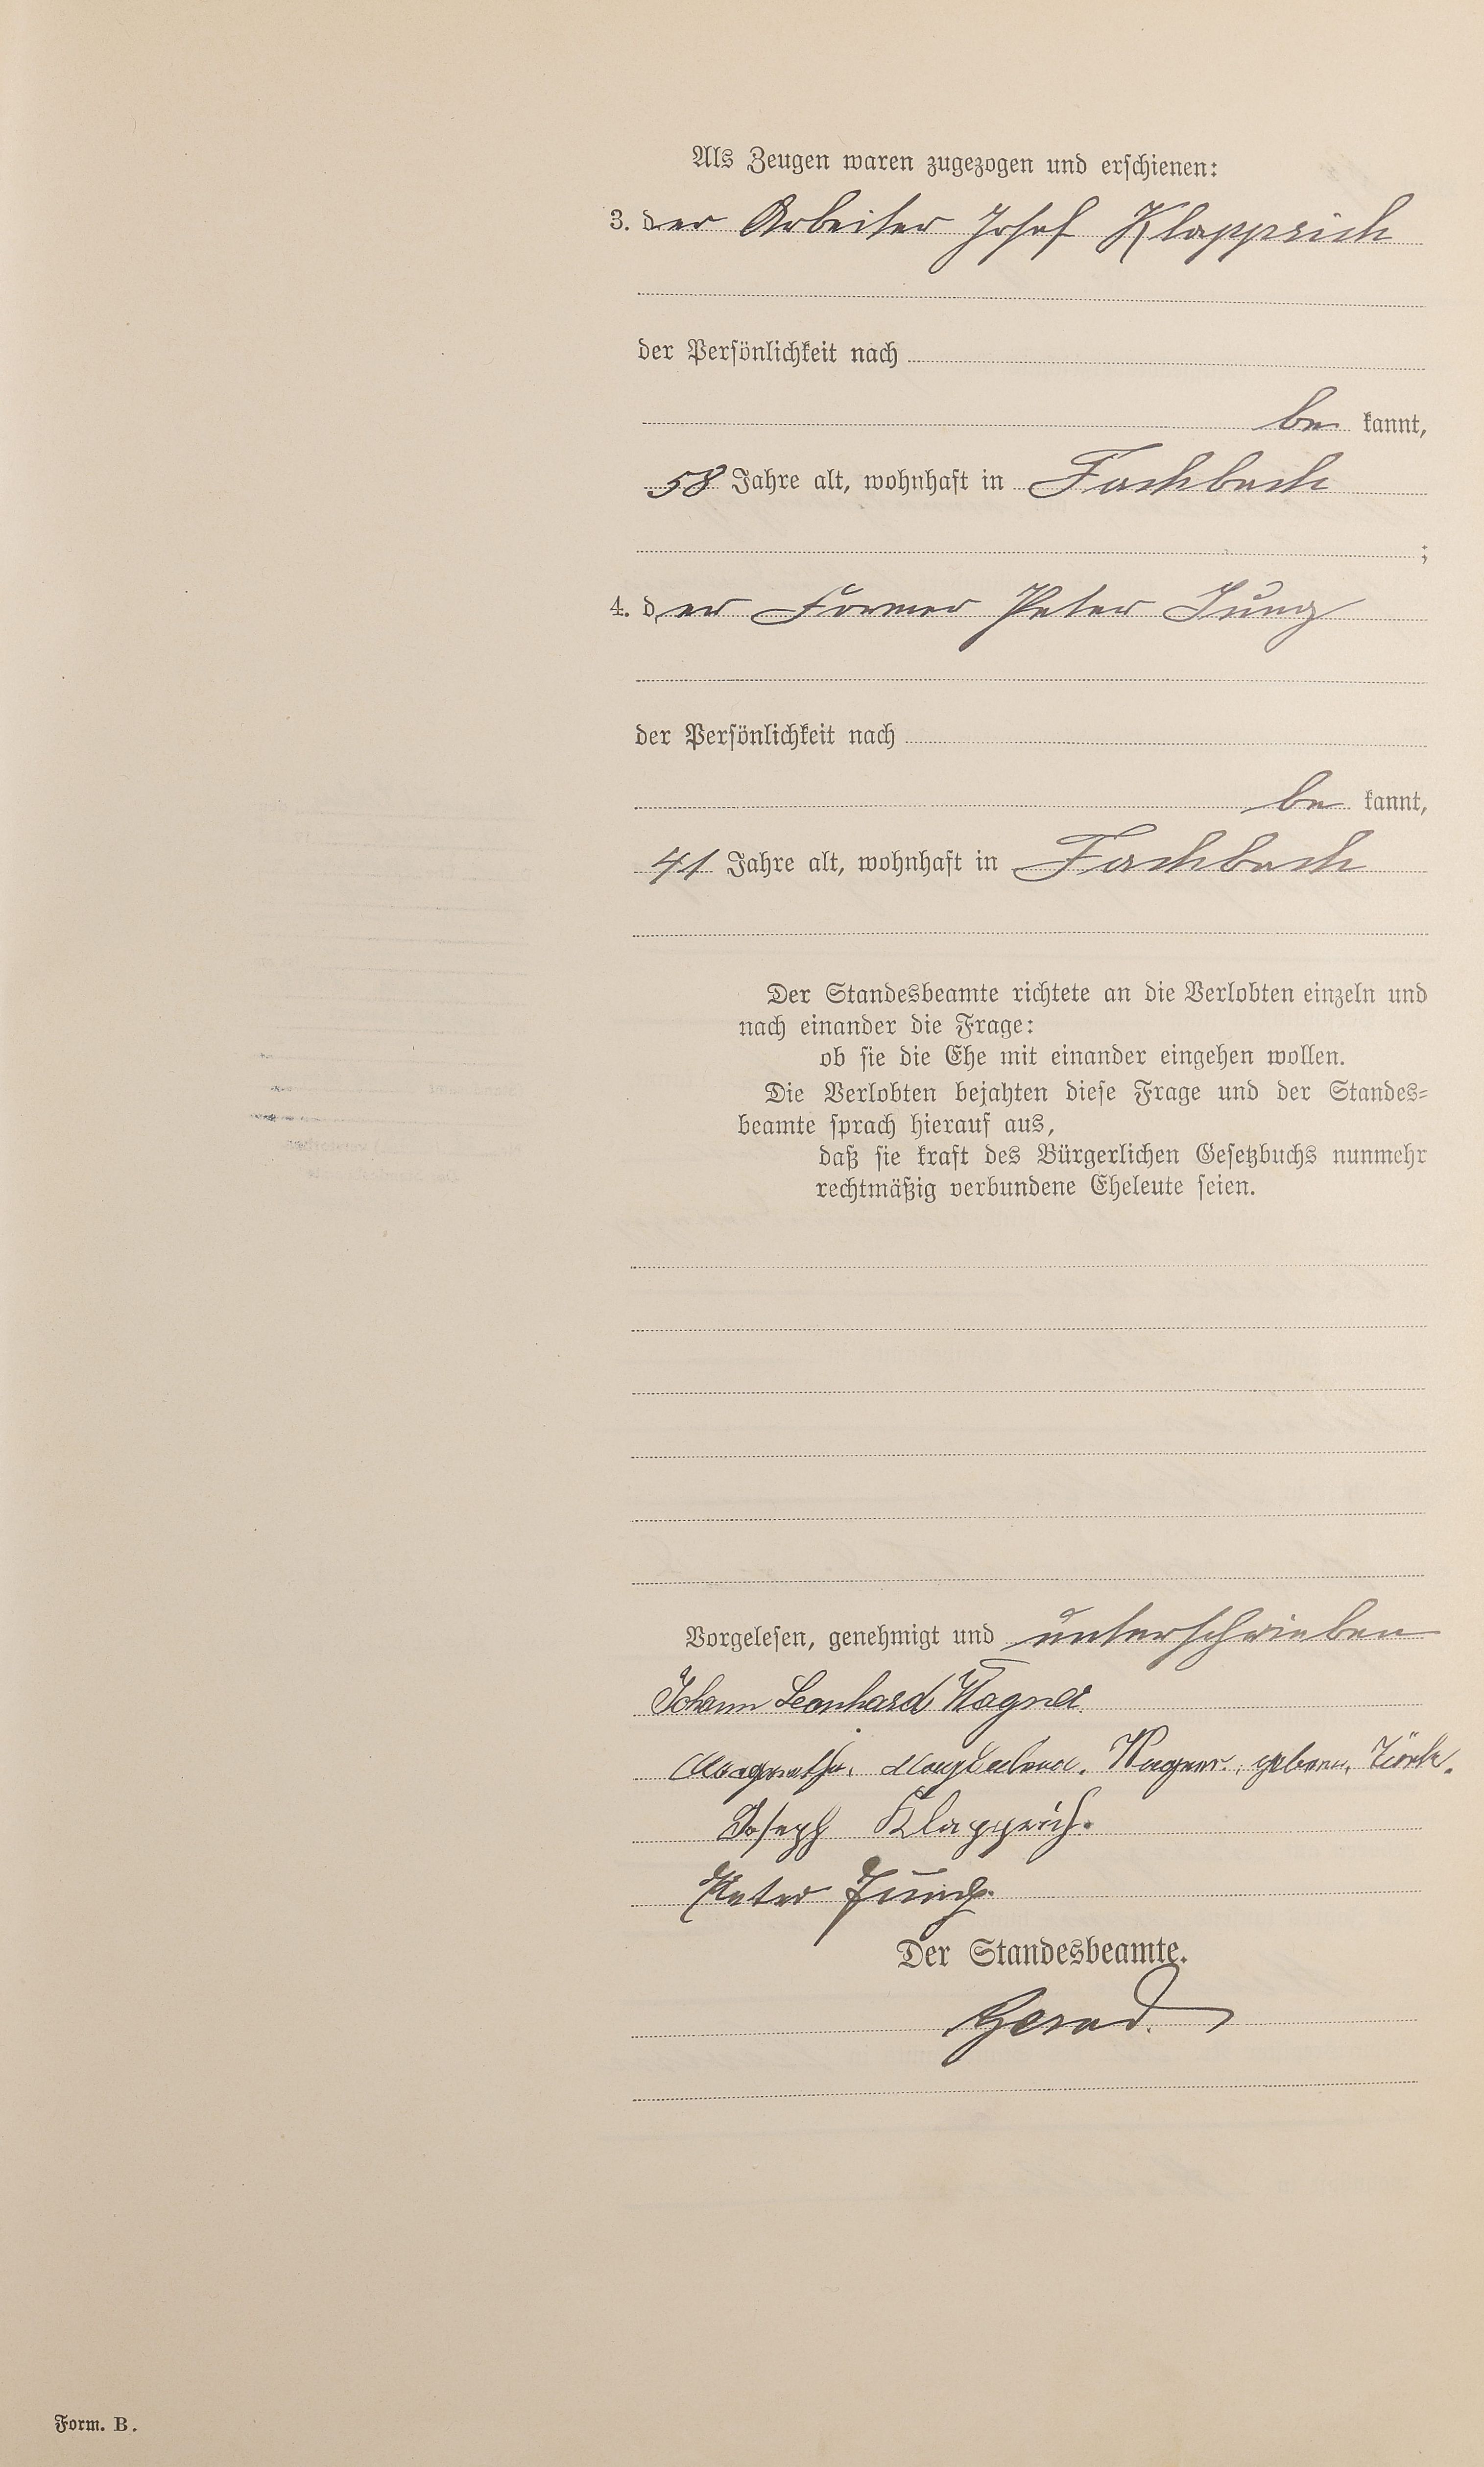 Als Zeugen waren zugezogen und erschienen:
3. der Arbeiter Josef Klapprich
der Persönlichkeit nach
be kannt,
58 Jahre alt, wohnhaft in Fachbach
;
4. der Former Peter Jung
der Persönlichkeit nach
be kannt,
41 Jahre alt, wohnhaft in Fachbach
Der Standesbeamte richtete an die Verlobten einzeln und
nach einander die Frage:
ob sie die Ehe mit einander eingehen wollen.
Die Verlobten bejahten diese Frage und der Standes=
beamte sprach hierauf aus,
daß sie kraft des Bürgerlichen Gesetzbuchs nunmehr
rechtmäßig verbundene Eheleute seien.
Vorgelesen, genehmigt und unterschrieben
Johann Leonhard Wagner.
Magdalena. Wagner.
Joseph Klapprich.
Peter Jung.
Der Standesbeamte.
Form. B.